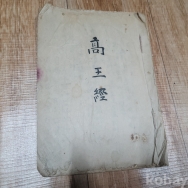 高
王
經
Kobay